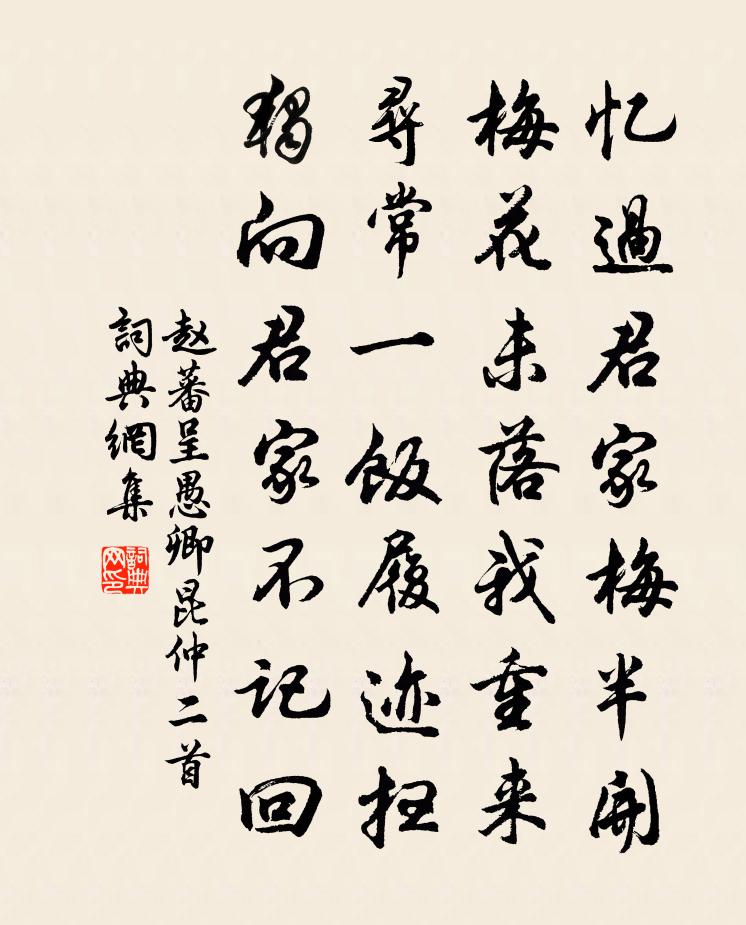 忆過君家梅半開
梅花未落我重来
尋常一飯履迹枉
獨向君家不記回
赵蕃呈愚卿昆仲二首
詞典網集
詞典网印